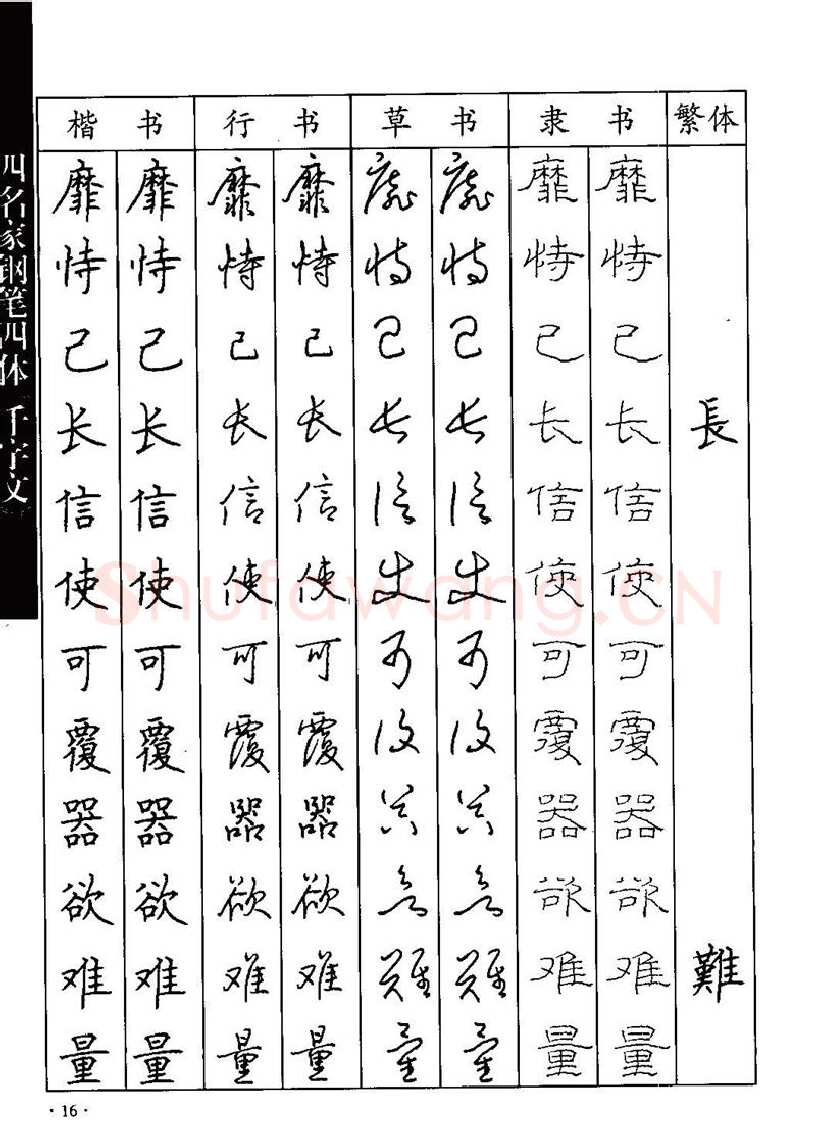 四名家钢笔四体 千字文
楷书 行书 草书 隶书 繁体
靡 靡 靡 靡 靡 靡 靡 靡
恃 恃 恃 恃 恃 恃 恃 恃
己 己 己 己 己 己 己 己
长 长 长 长 长 长 长 长 長
信 信 信 信 信 信 信 信
使 使 使 使 使 使 使 使
可 可 可 可 可 可 可 可
覆 覆 覆 覆 覆 覆 覆 覆
器 器 器 器 器 器 器 器
欲 欲 欲 欲 欲 欲 欲 欲
难 难 难 难 难 难 难 难 難
量 量 量 量 量 量 量 量
Shufawang.CN
·16·